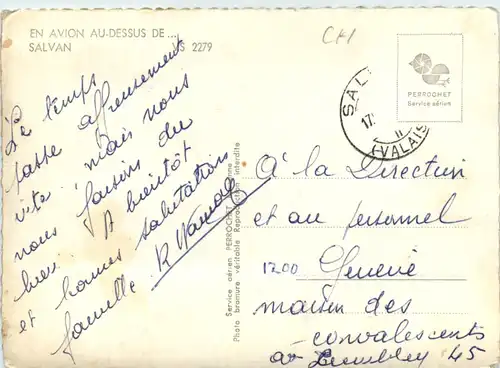 EN AVION AU-DESSUS DE ...
SALVAN S 2279
CH
PERROCHET
Service aérien
SAL
17
II
(VALAIS
Le temps
passe affreusement
vite, mais nous
nous faisons du
bien. A bientôt
et bonnes salutations
famille
Service aérien PERROCHET
Photo bromure véritable Reproduction interdite
à la Direction
et au personnel
1200 Genève
maison des
convalescents
45